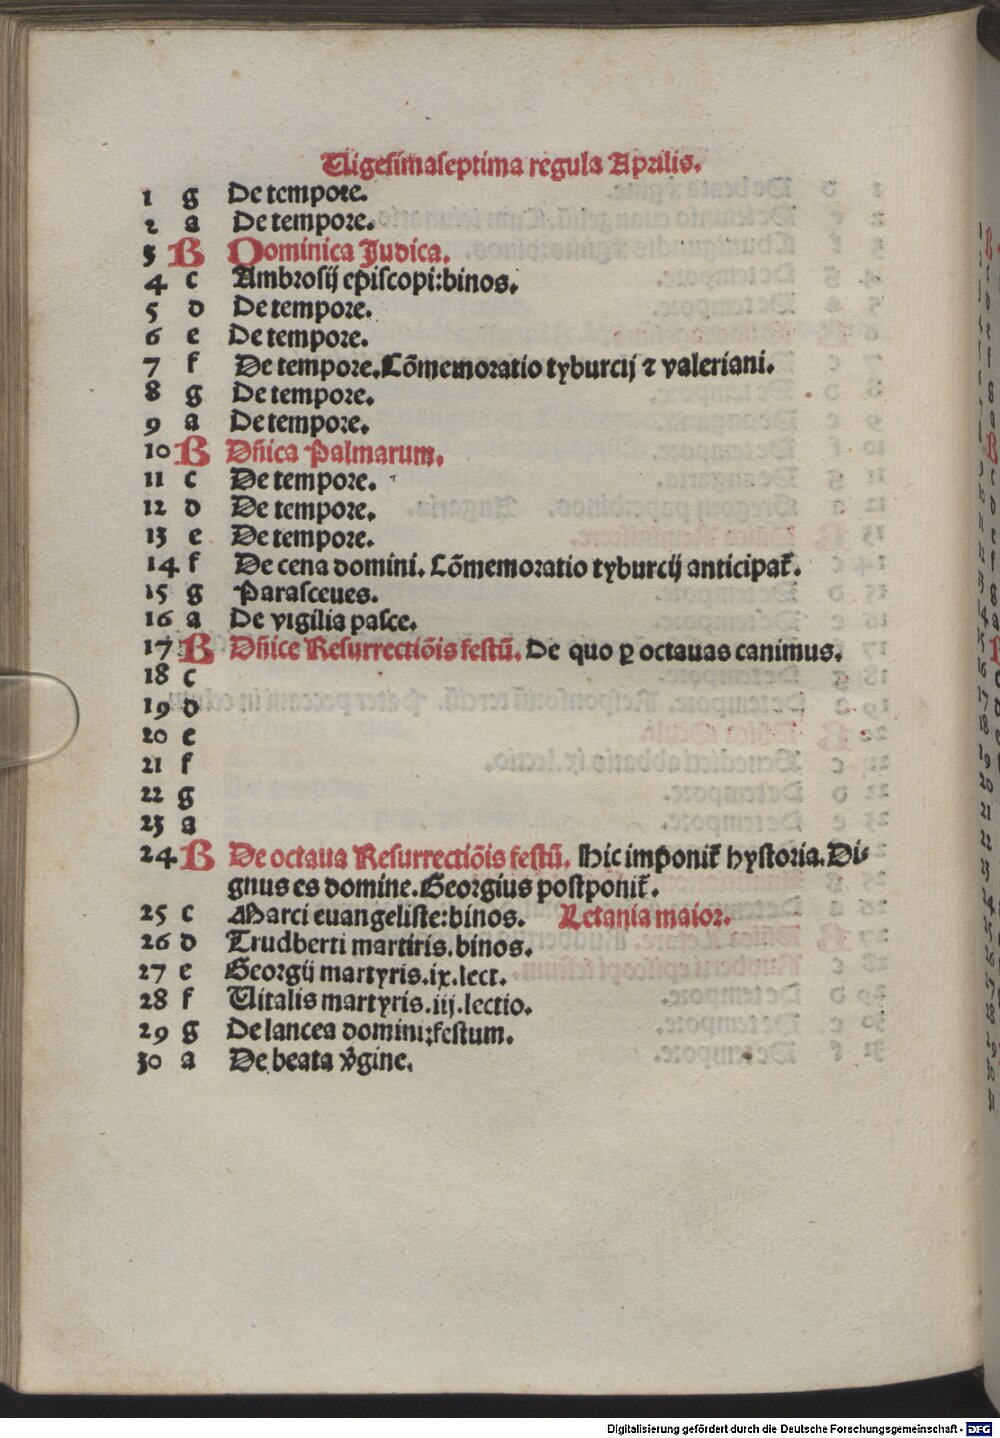 Uigesimaseptima regula Aprilis.
1 g De tempore.
2 a De tempore.
3 B Dominica Judica.
4 c Ambrosij episcopi:binos.
5 d De tempore.
6 e De tempore.
7 f De tempore. Cõmemoratio tyburcij ⁊ valeriani.
8 g De tempore.
9 a De tempore.
10 B Dñica Palmarum.
11 c De tempore.
12 d De tempore.
13 e De tempore.
14 f De cena domini. Cõmemoratio tyburcij anticipat̃.
15 g Parasceues.
16 a De vigilia pasce.
17 B Dñice Resurrectiõis festũ. De quo ꝑ octauas canimus.
18 c
19 d
20 e
21 f
22 g
23 a
24 B De octaua Resurrectiõis festũ. Hic imponit̃ hystoria. Di-
gnus es domine. Georgius postponit̃.
25 c Marci euangeliste:binos. Letania maior.
26 d Trudberti martiris.binos.
27 e Georgij martyris.ix.lect.
28 f Uitalis martyris.iij.lectio.
29 g De lancea domini:festum.
30 a De beata v̾gine.
Digitalisierung gefördert durch die Deutsche Forschungsgemeinschaft - DFG